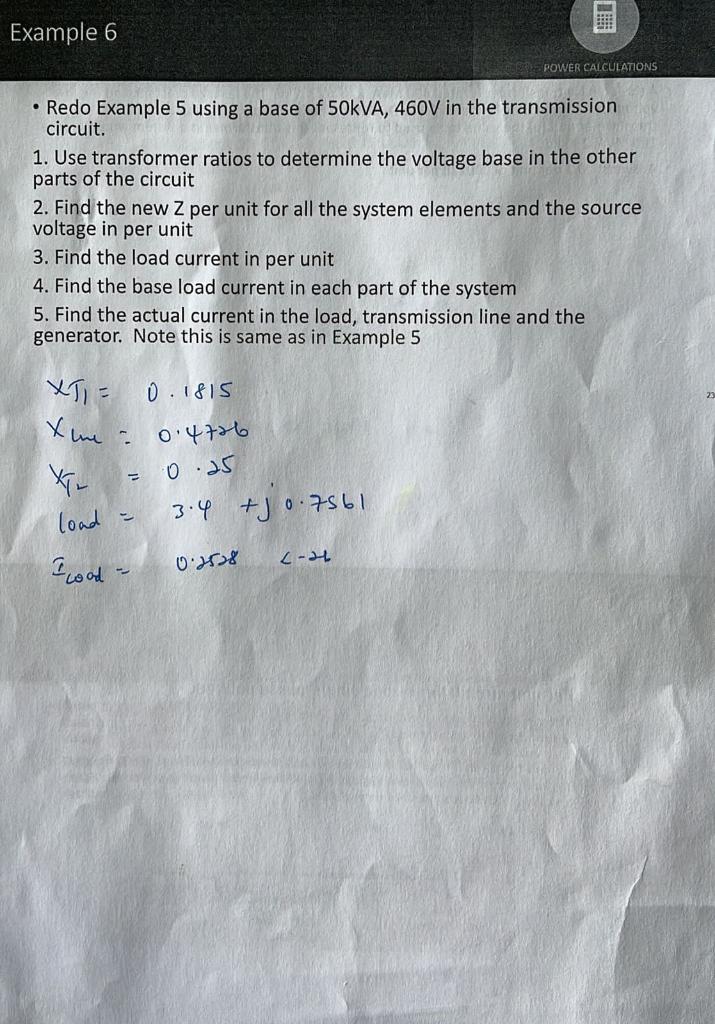 Example 6
POWER CALCULATIONS
• Redo Example 5 using a base of 50kVA, 460V in the transmission
circuit.
1. Use transformer ratios to determine the voltage base in the other
parts of the circuit
2. Find the new Z per unit for all the system elements and the source
voltage in per unit
3. Find the load current in per unit
4. Find the base load current in each part of the system
5. Find the actual current in the load, transmission line and the
generator. Note this is same as in Example 5
23
XT1 = 0.1815
X line = 0.4726
XT2 = 0.25
load = 3.4 + j 0.7561
I Load = 0.2528 <-26